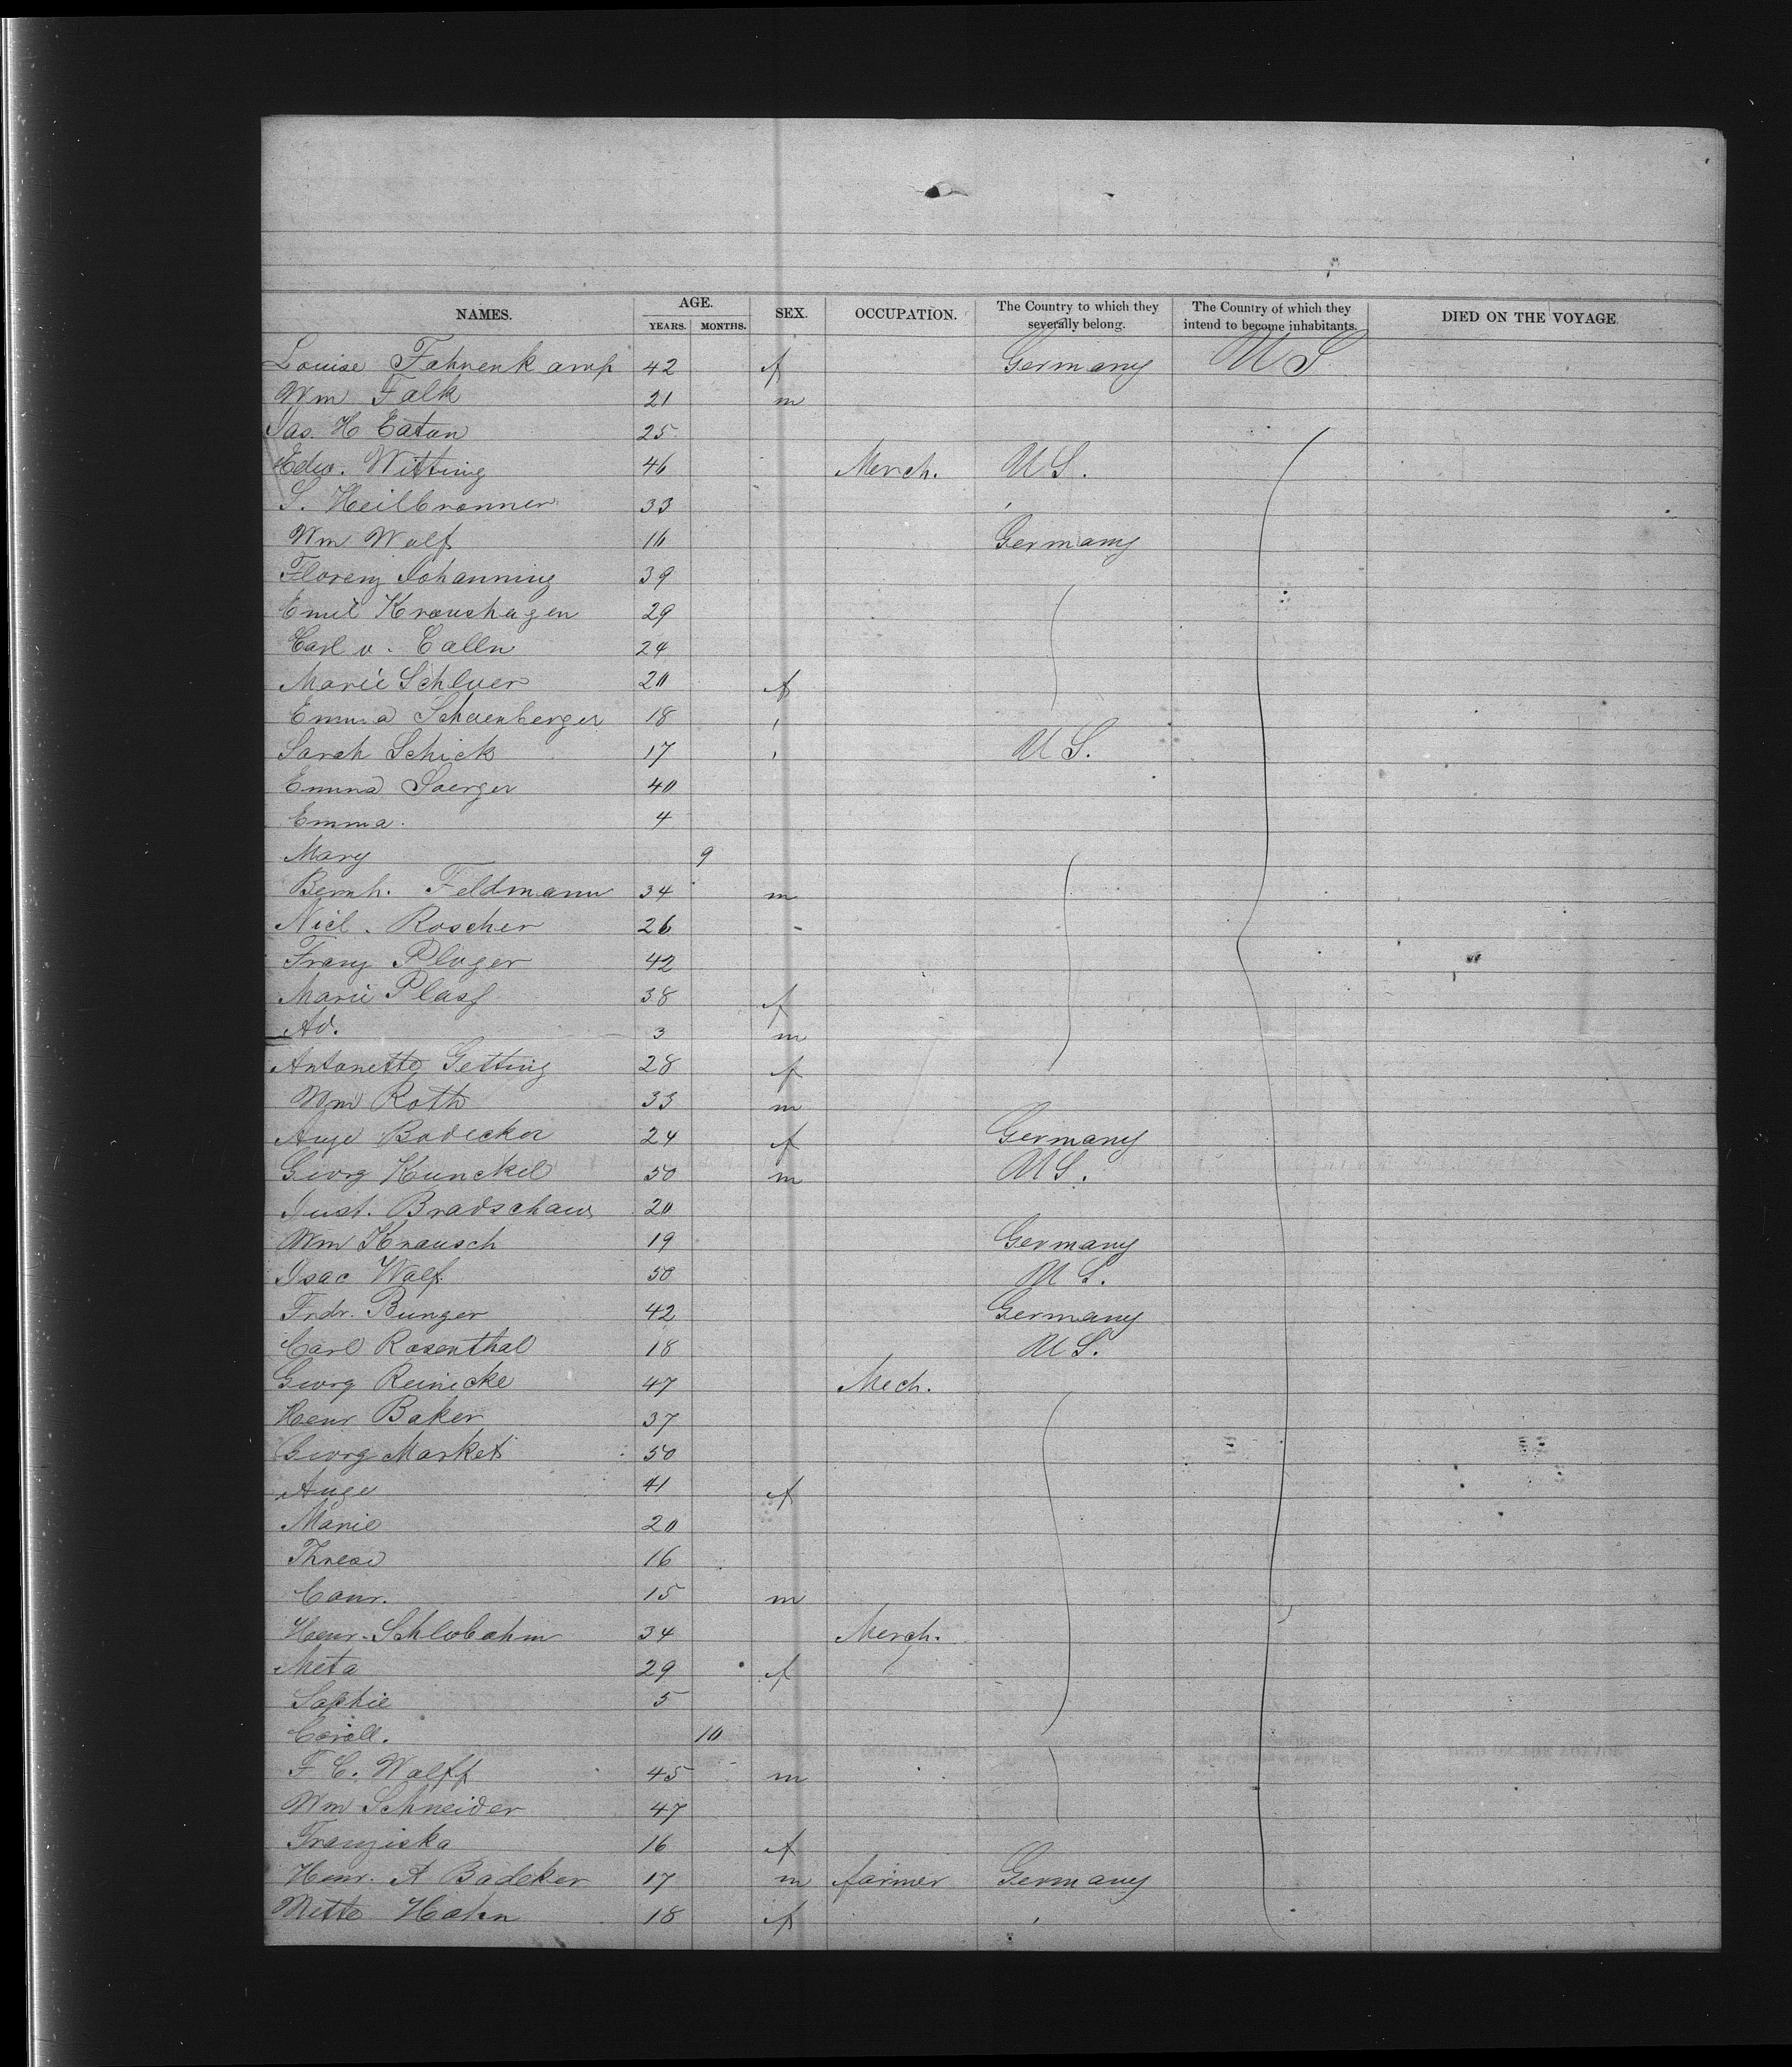 NAMES. AGE. SEX. OCCUPATION. The Country to which they severally belong. The Country of which they intend to become inhabitants. DIED ON THE VOYAGE
YEARS. MONTHS.
Louise Fahrenkamp 42 f Germany U S
Wm Falk 21 m
Jas. H Eaton 25
Edw. Witting 46 Merch. U S.
S. Heilbronner 33 "
Wm Wolf 16 Germany
Florenz Johanning 39
Emil Kraushagen 29
Carl v. Calln 24
Marie Schluer 20 f
Emma Schoenberger 18 "
Sarah Schick 17 " U S.
Emma Soerger 40
Emma. 4
Mary 9
Bernh. Feldmann 34 m
Nicl. Roscher 26 -
Franz Pluger 42
Marie Plass 38 f
Ad. 3 m
Antonette Getting 28 f
Wm Roth 33 m
Auge Badecker 24 f Germany
Georg Kunckel 50 m U S.
Just. Bradschaw 20
Wm Krausch 19 Germany
Isac Wolf 50 U S.
Frdr. Bunger 42 Germany
Carl Rosenthal 18 U S.
Georg Reinicke 47 Mech.
Henr Baker 37
Georg Market 50
Auge 41 f
Marie 20
Threse 16
Conr. 15 m
Henr. Schlobohm 34 Merch.
Meta 29 f
Sophie 5
Caroll. 10
F C. Wolff 45 m
Wm Schneider 47
Franziska 16 f
Henr. A Badeker 17 m farmer Germany
Mette Hahn 18 f "